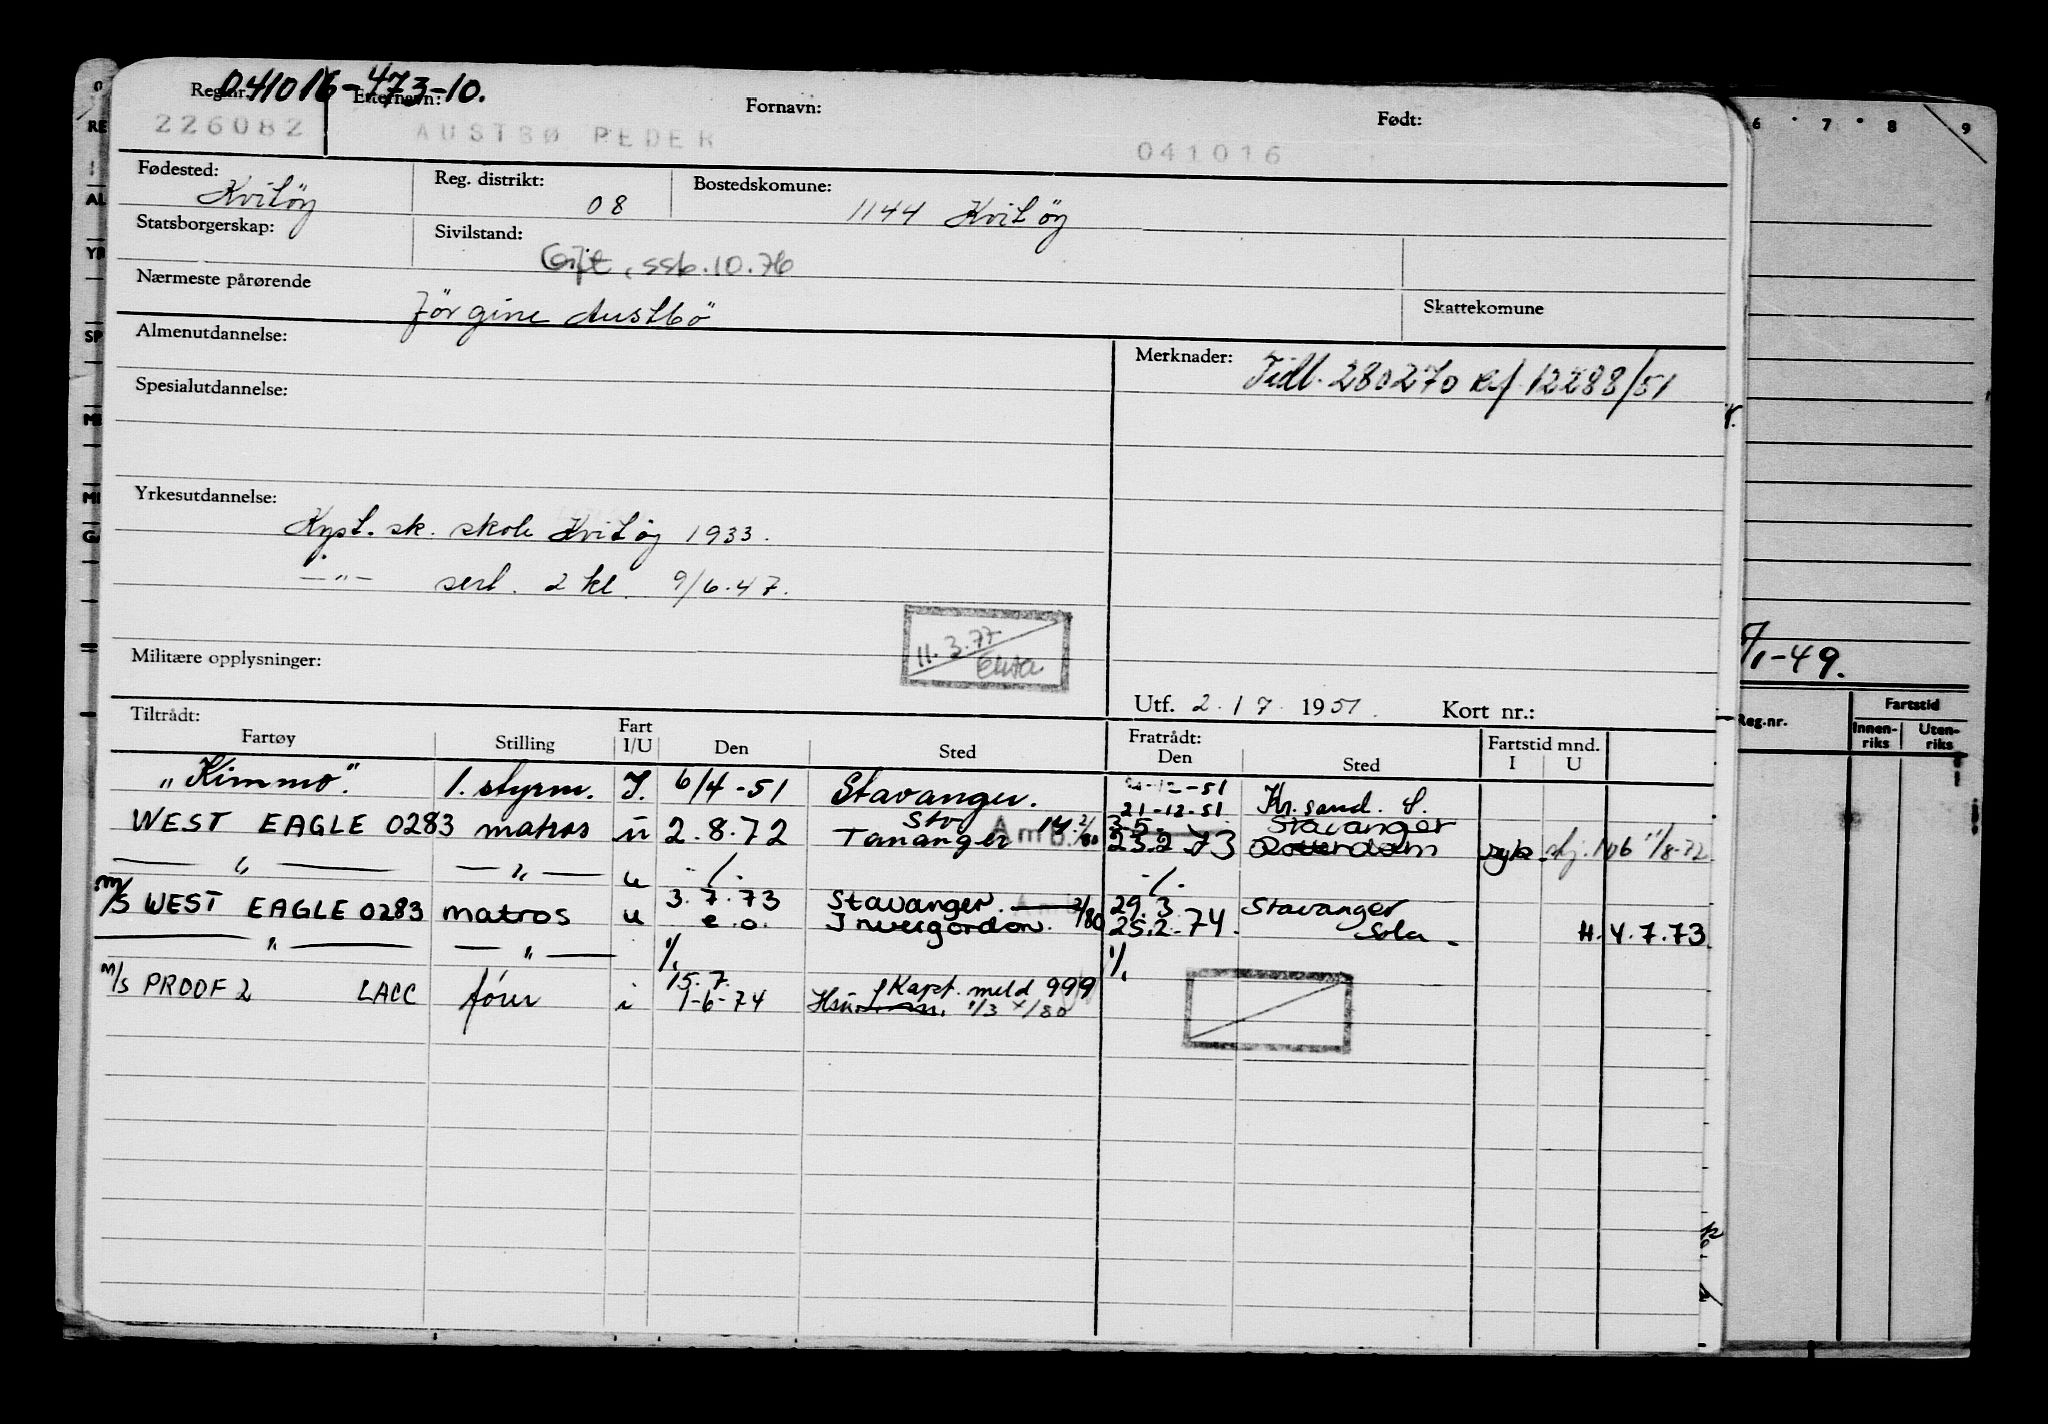 041016-473-10.
Reg.nr. Etternavn: Fornavn: Født:
226082 AUSTBØ PEDER 041016
Fødested: Reg. distrikt: Bostedskomune:
Kvitöy 08 1144 Kvitöy
Statsborgerskap: Sivilstand:
Gift, ssb.10.76
Nærmeste pårørende
Jörgine Austbö Skattekomune
Almenutdannelse: Merknader: Tidl. 280270 Ref. 12288/51
Spesialutdannelse:
Yrkesutdannelse:
Kyst. sk. skole Kvitöy 1933.
—"— sert. 2 kl. 9/6.47.
11.3.77
Militære opplysninger:
Utf. 2. / 7. 1951. Kort nr.:
Tiltrådt: Fratrådt: Fartstid mnd.
Fartøy Stilling Fart I/U Den Sted Den Sted I U
"Kimmo". 1. styrm. I. 6/4-51 Stavanger. 21-12-51. Kr.sand. S.
WEST EAGLE 0283 matros u 2.8.72 Tananger 23.2.73 Stavanger 11/8-72
—"— —"— u
m/S WEST EAGLE 0283 matros u 3.7.73 Stavanger. 2/80 29.3. Stavanger
e.o. Invergordon. 25.2.74. Sola H.4.7.73
—"— —"— %. %.
m/s PROOF 2 LACC förer i 15.7. Kapt. meld 999
1-6-74
6 7 8 9
/1-49.
Reg.nr. Fartstid
Innen-riks Uten-riks